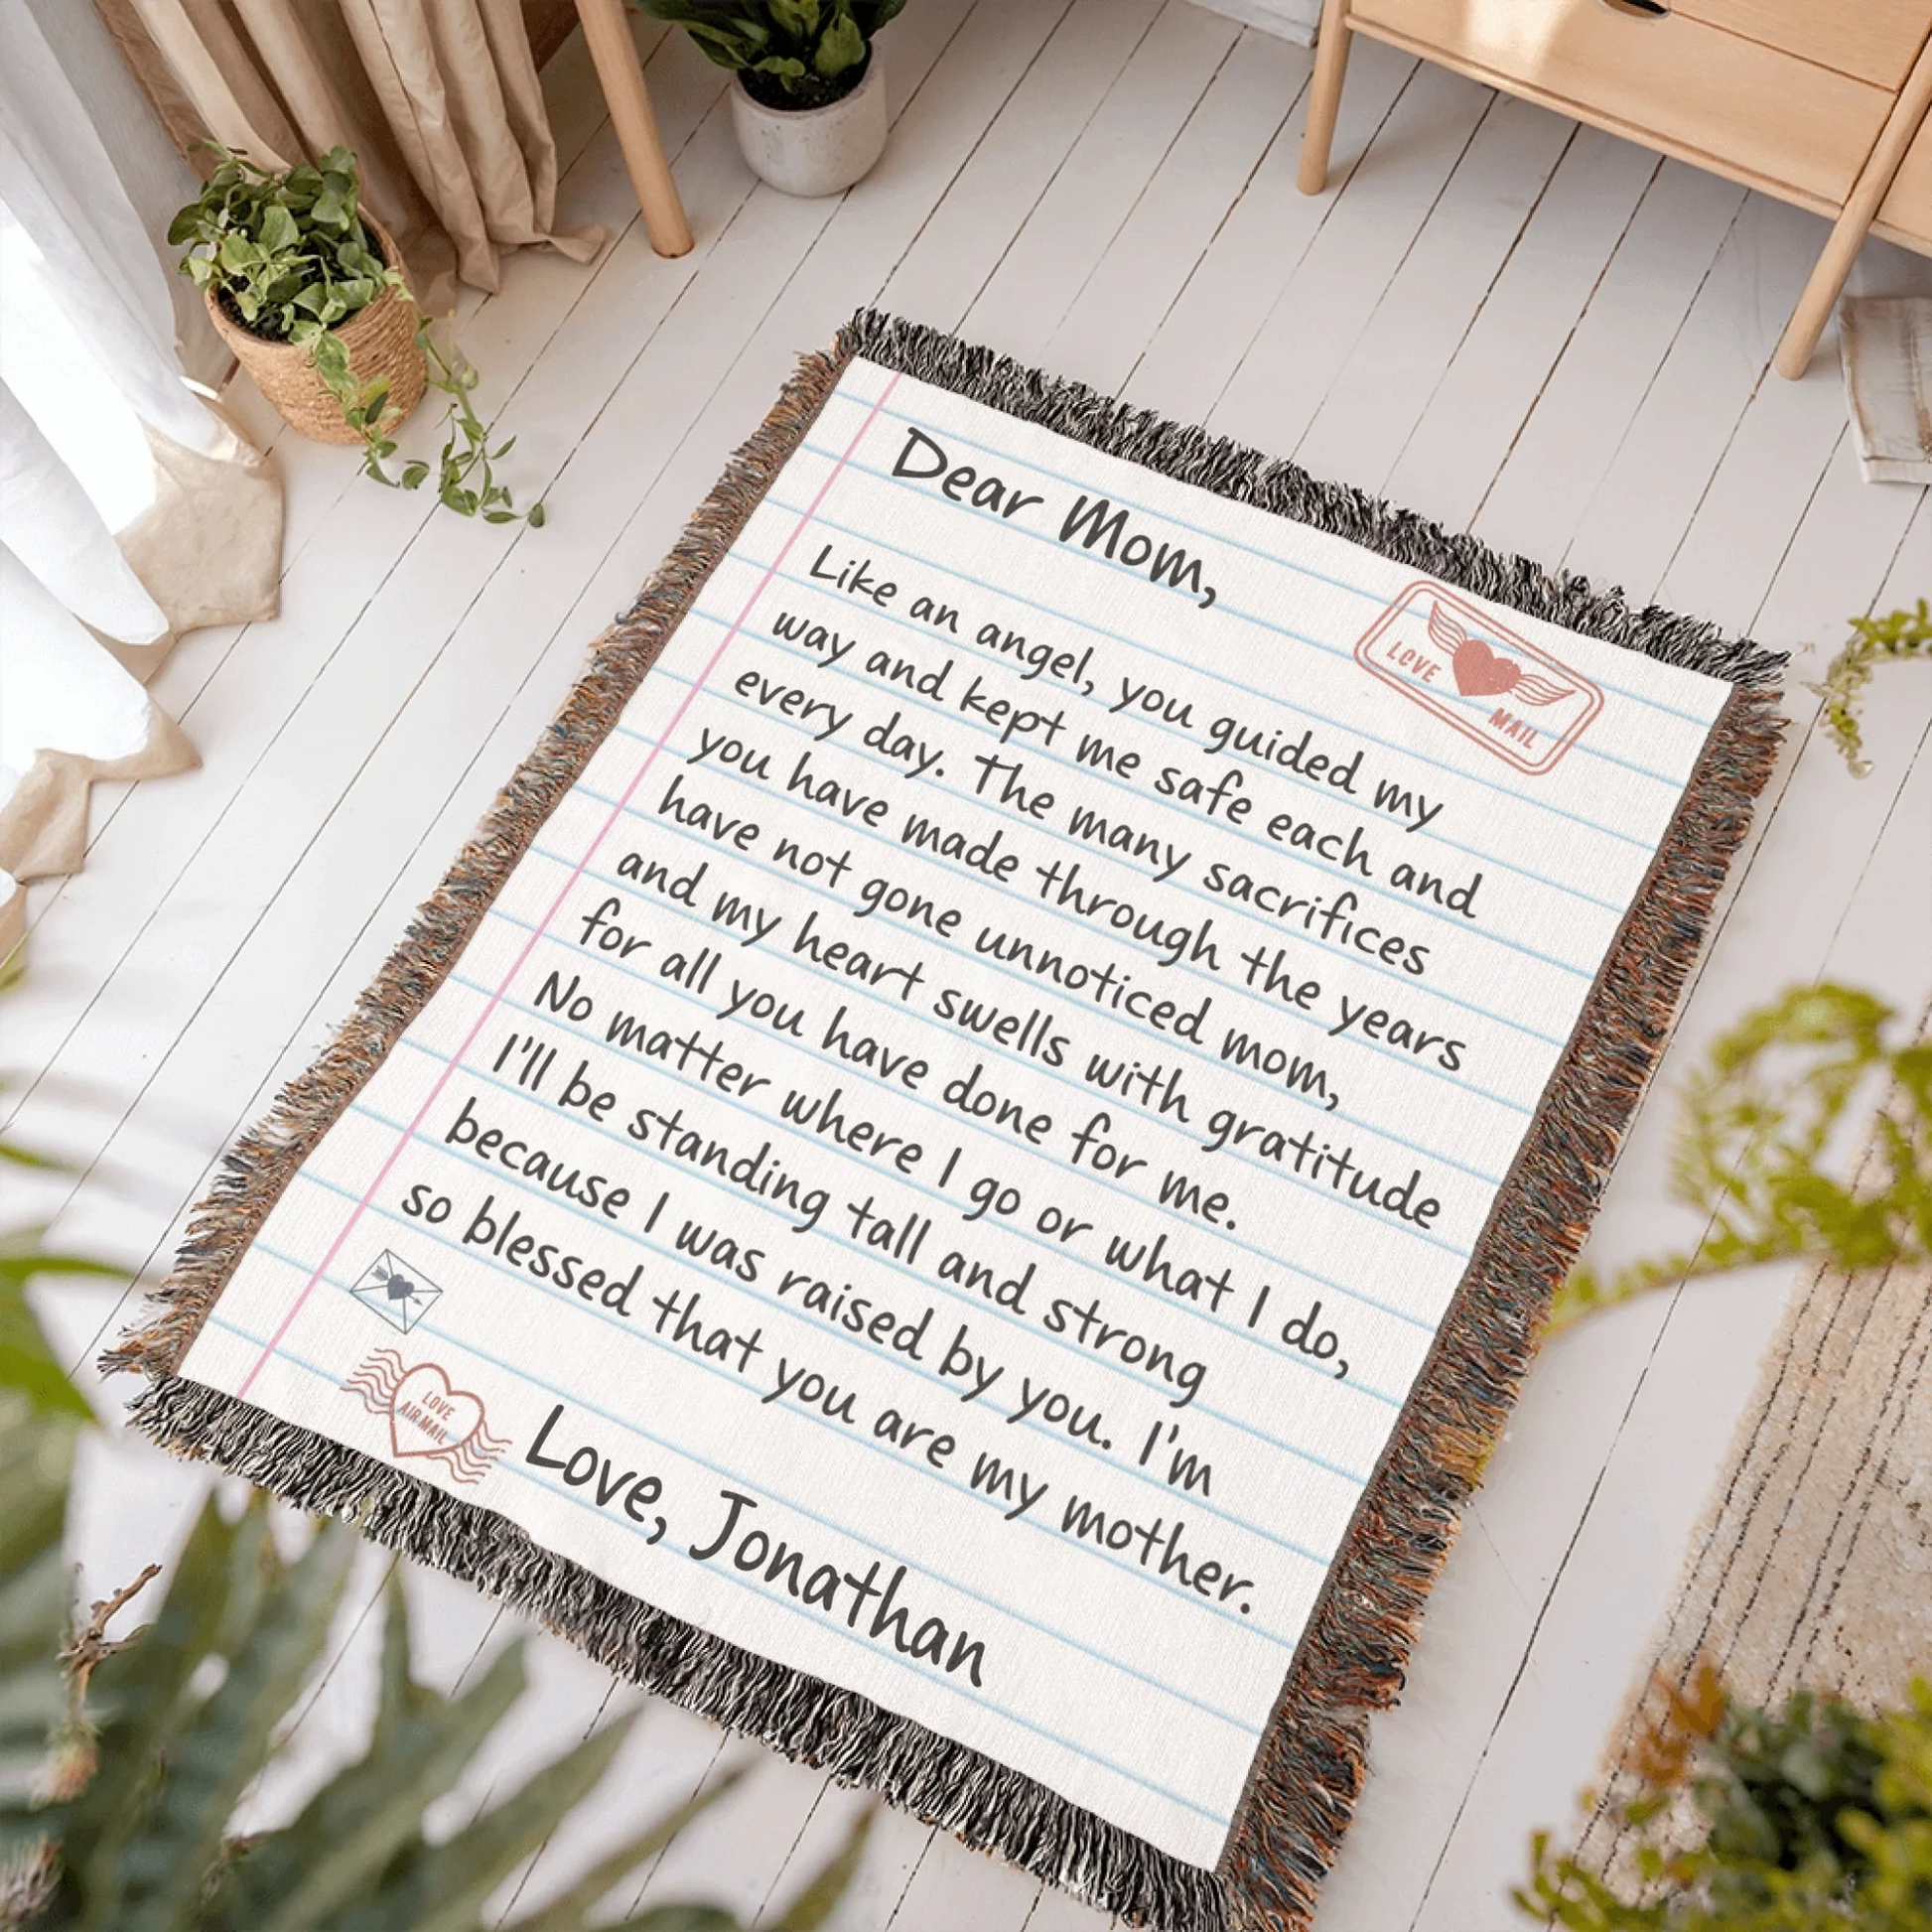 Dear Mom,
LOVE
MAIL
Like an angel, you guided my
way and kept me safe each and
every day. The many sacrifices
you have made through the years
have not gone unnoticed mom,
and my heart swells with gratitude
for all you have done for me.
No matter where I go or what I do,
I'll be standing tall and strong
because I was raised by you. I'm
so blessed that you are my mother.
LOVE
AIR MAIL
Love, Jonathan